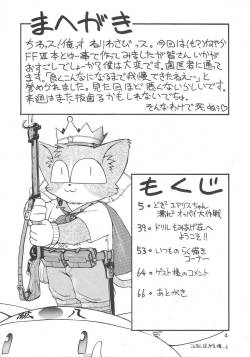 まへがき
ちわっス!俺っす ねりわさびッス。今回は(も?)なぜか
FFⅦ本とゆー事で作ってみましたが皆さんいかが
おすごしでしょーか?僕は大変です。歯医者に通って
ます。「良くこんなになるまで我慢できたねえ〜」と
誉められました。見た目ほど悪くないらしいです。
来週はまた抜歯るかもしれないでっちゅ。
そんなわけで死ぬっ♡
もくじ
5・どき エアリスちゃん
濡れ オッパイ大作戦
39・ドリルもみあげ荘へ
ようこそ!!
53・いつもの らく描き
コーナー
64・ゲスト様のコメント
66・あとがき
4